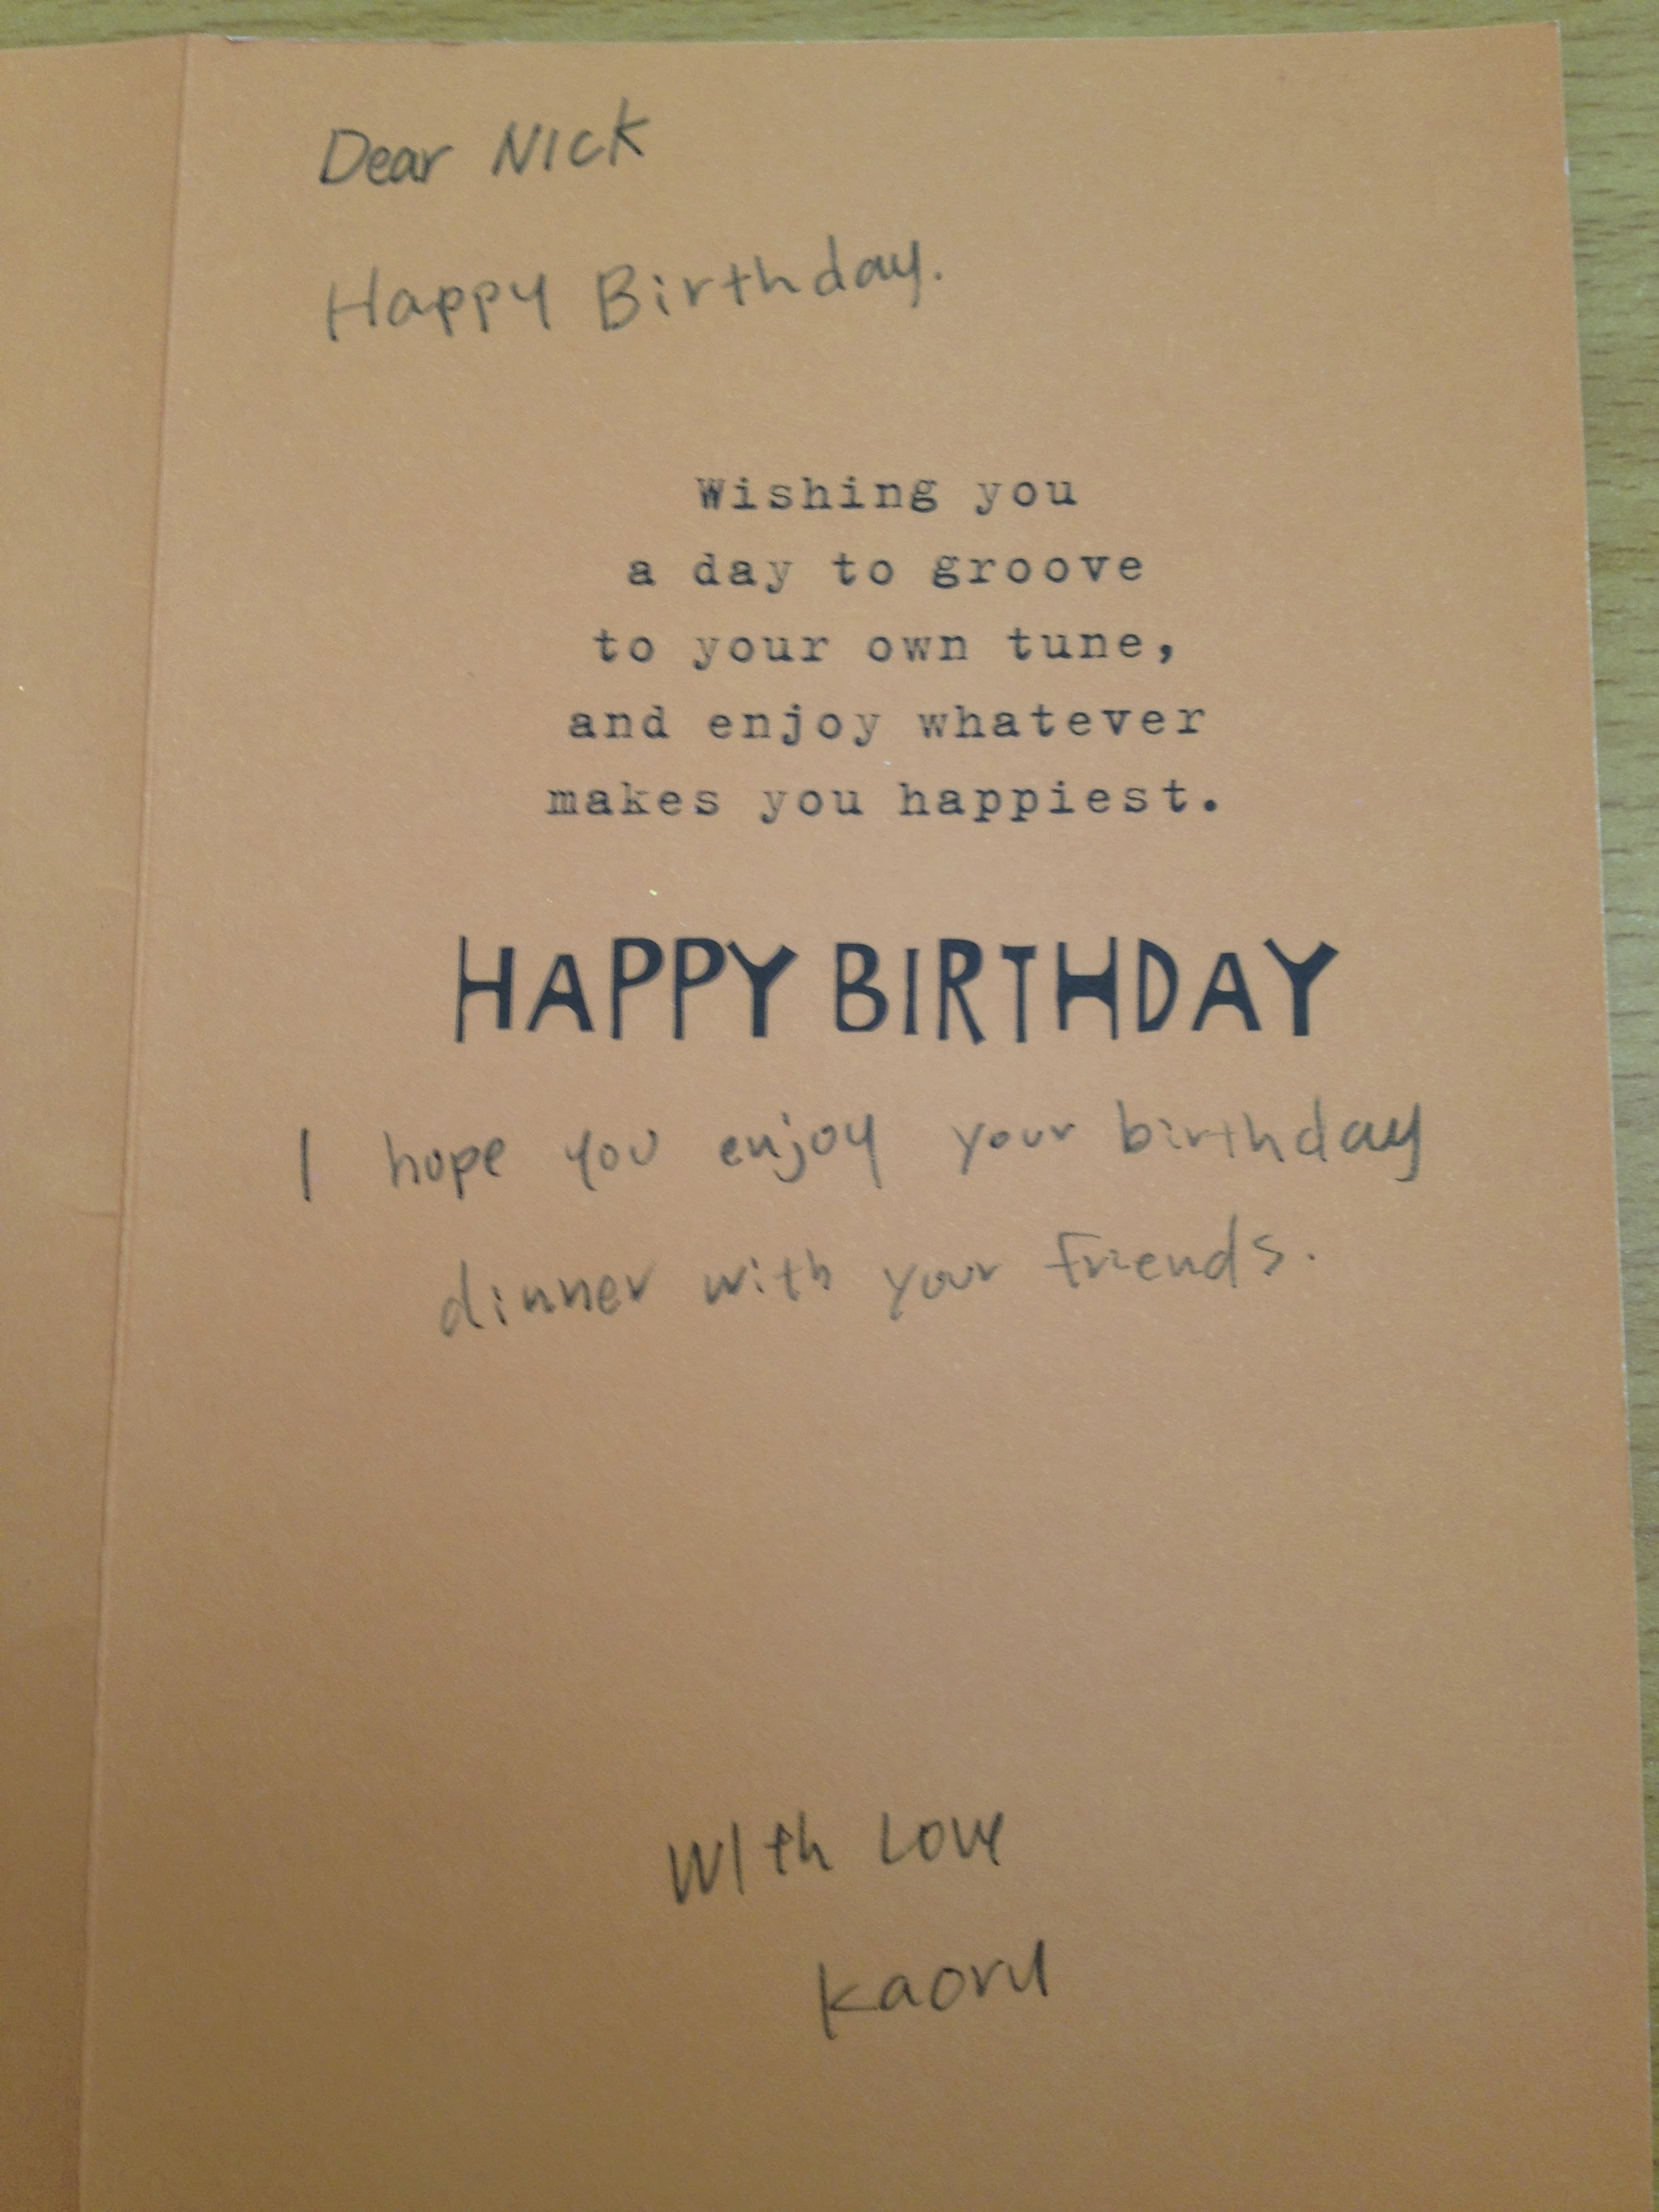 Dear Nick
Happy Birthday.
Wishing you
a day to groove
to your own tune,
and enjoy whatever
makes you happiest.
HAPPY BIRTHDAY
I hope you enjoy your birthday
dinner with your friends.
With Love
Kaoru